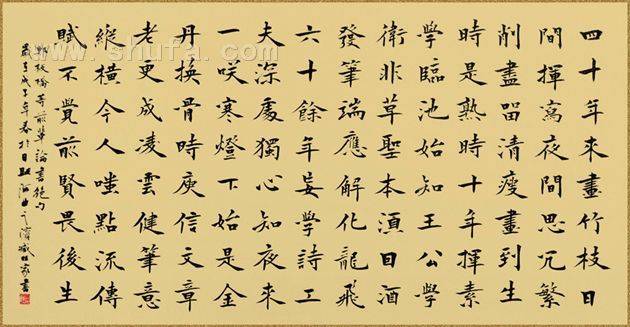 四十年來畫竹枝日
間揮寫夜間思冗繁
削盡留清瘦畫到生
時是熟時十年揮素
學臨池始知王公學
衛非草聖本湏因酒
發筆端應解化龍飛
六十餘年妄學詩工
夫深處獨心知夜來
一咲寒燈下始是金
丹換骨時庾信文章
老更成凌雲健筆意
縱橫今人嗤點流傳
賦不覺前賢畏後生
鄭板橋等前輩論書絕句
戊子年春於日照河山之濱
www.shufa.com